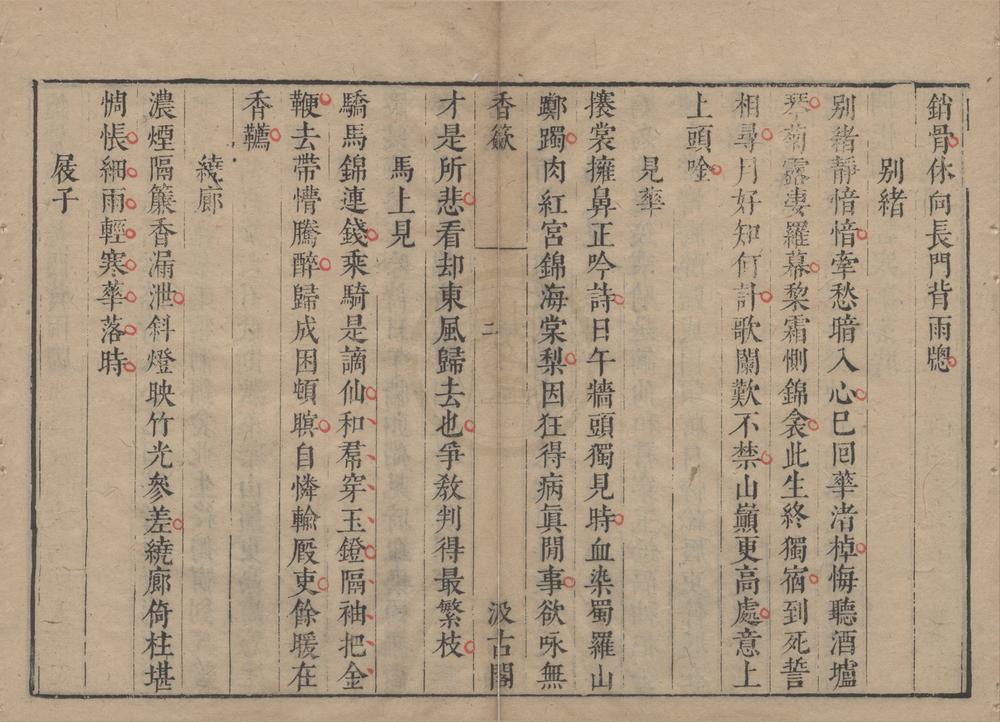 銷骨休向長門背雨牕
別緒
別緒靜愔愔牽愁暗入心巳回華渚棹悔聽酒壚
琴菊露凄羅幕黎霜惻錦衾此生終獨宿到死誓
相尋月好知何計歌闌歎不禁山巔更高處意上
上頭唫
見華
搴裳擁鼻正吟詩日午牆頭獨見時血染蜀羅山
躑躅肉紅宮錦海棠梨因狂得病眞閒事欲咏無
香籢 二 汲古閣
才是所悲看却東風歸去也爭敎判得最繁枝
馬上見
驕馬錦連錢乘騎是謫仙和帬穿玉鐙隔袖把金
鞭去帶懵騰醉歸成困頓瞑自憐輸廄吏餘暖在
香韉
繞廊
濃煙隔簾香漏泄斜燈映竹光參差繞廊倚柱堪
惆悵細雨輕寒華落時
屐子